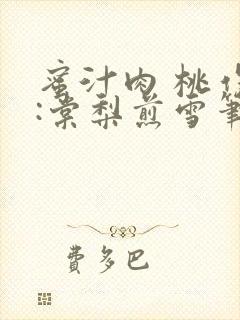 蜜汁肉桃作
:棠梨煎雪笔
費多巴